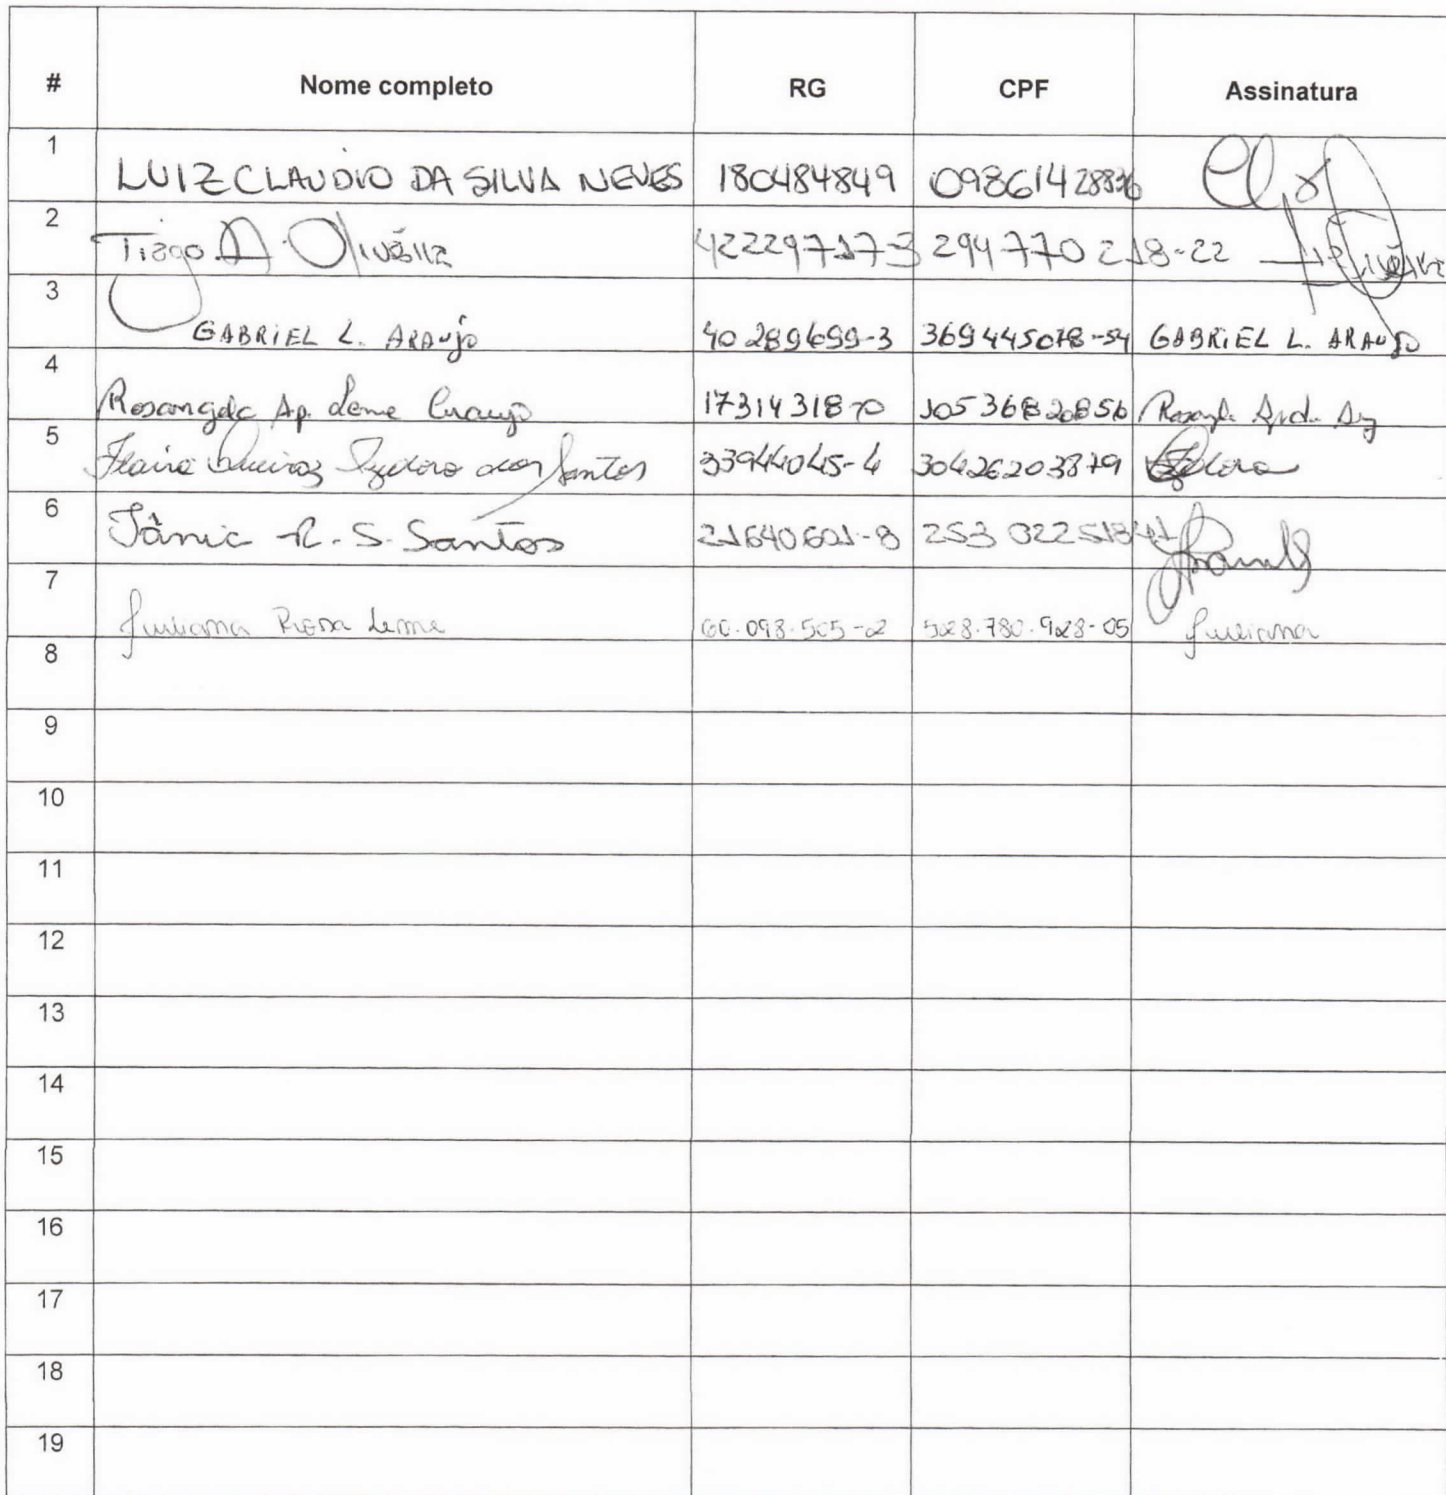 # Nome completo RG CPF Assinatura
1 LUIZ CLAUDIO DA SILVA NEVES 180484849
2 Tiago A. Oliveira 42229717-3 294770218-22
3 GABRIEL L. ARAUJO 40289699-3 369445078-54 GABRIEL L. ARAUJO
4 Rosangela Ap. Leme Araujo
5 dos Santos 33944045-4 30426203879
6 Tânia R. S. Santos 21640601-8 253022518
7 Juliana Rosa Leme 60.098.505-2 528.780.928-05 Juliana
8
9
10
11
12
13
14
15
16
17
18
19